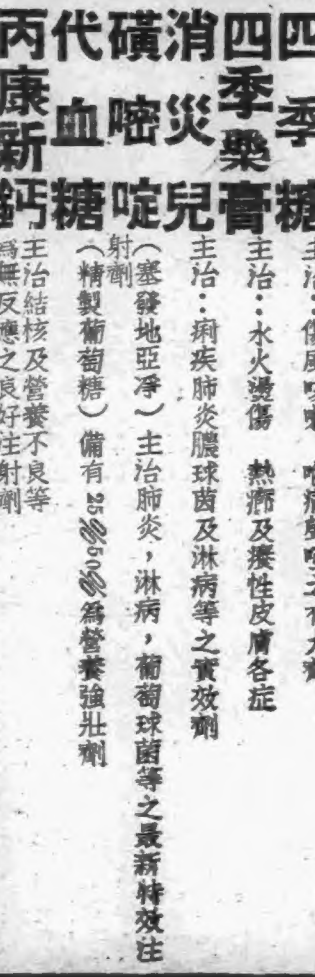 四季糖
主治：傷風咳嗽
四季藥膏
主治：水火燙傷 熱癤及癢性皮膚各症
消災兒
主治：痢疾肺炎膿球菌及淋病等之實效劑
磺嘧啶
（塞發地亞淨）主治肺炎，淋病，葡萄球菌等之最新特效注
射劑
代血糖
（精製葡萄糖）備有25%50%為營養強壯劑
丙康新鈣
主治結核及營養不良等
為無反應之良好注射劑